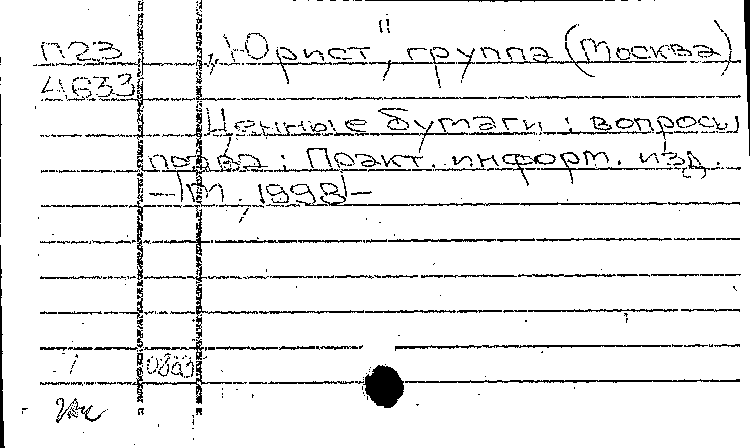 П23 „Юрист", группа (Москва)
4633
Ценные бумаги: вопросы
права: Практ. информ. изд.
– М., 1998 –